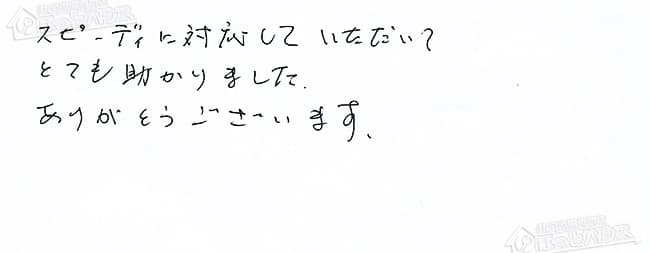 スピーディに対応していただいて
とても助かりました.
ありがとうございます.